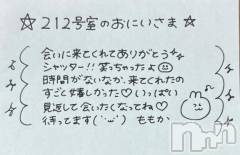 ☆212号室のおにいさま☆
会いに来てくれてありがとう
シャッター!!笑っちゃったよ
時間がないなか、来てくれたの
すごく嬉しかった♡いっぱい
見返して会いたくなってね♡
待ってます(¨) ももか
Night-Nightnavi